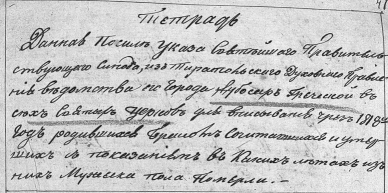 Тетрадь
Данная Посилѣ Указа Святѣйшого Правитель
ствующого Синода, изъ Тираспольского Духовного Правле
нія вѣдомства его Города Дубосаръ Греческой В
сѣхъ Святыхъ Церковь для вписованія чрезъ 1818й
Годъ родившихся Бракомъ Сочитавшихся и умер
шихъ съ показаніемъ въ Какихъ лѣтахъ изъ
нихъ Мужеска пола Померли. —